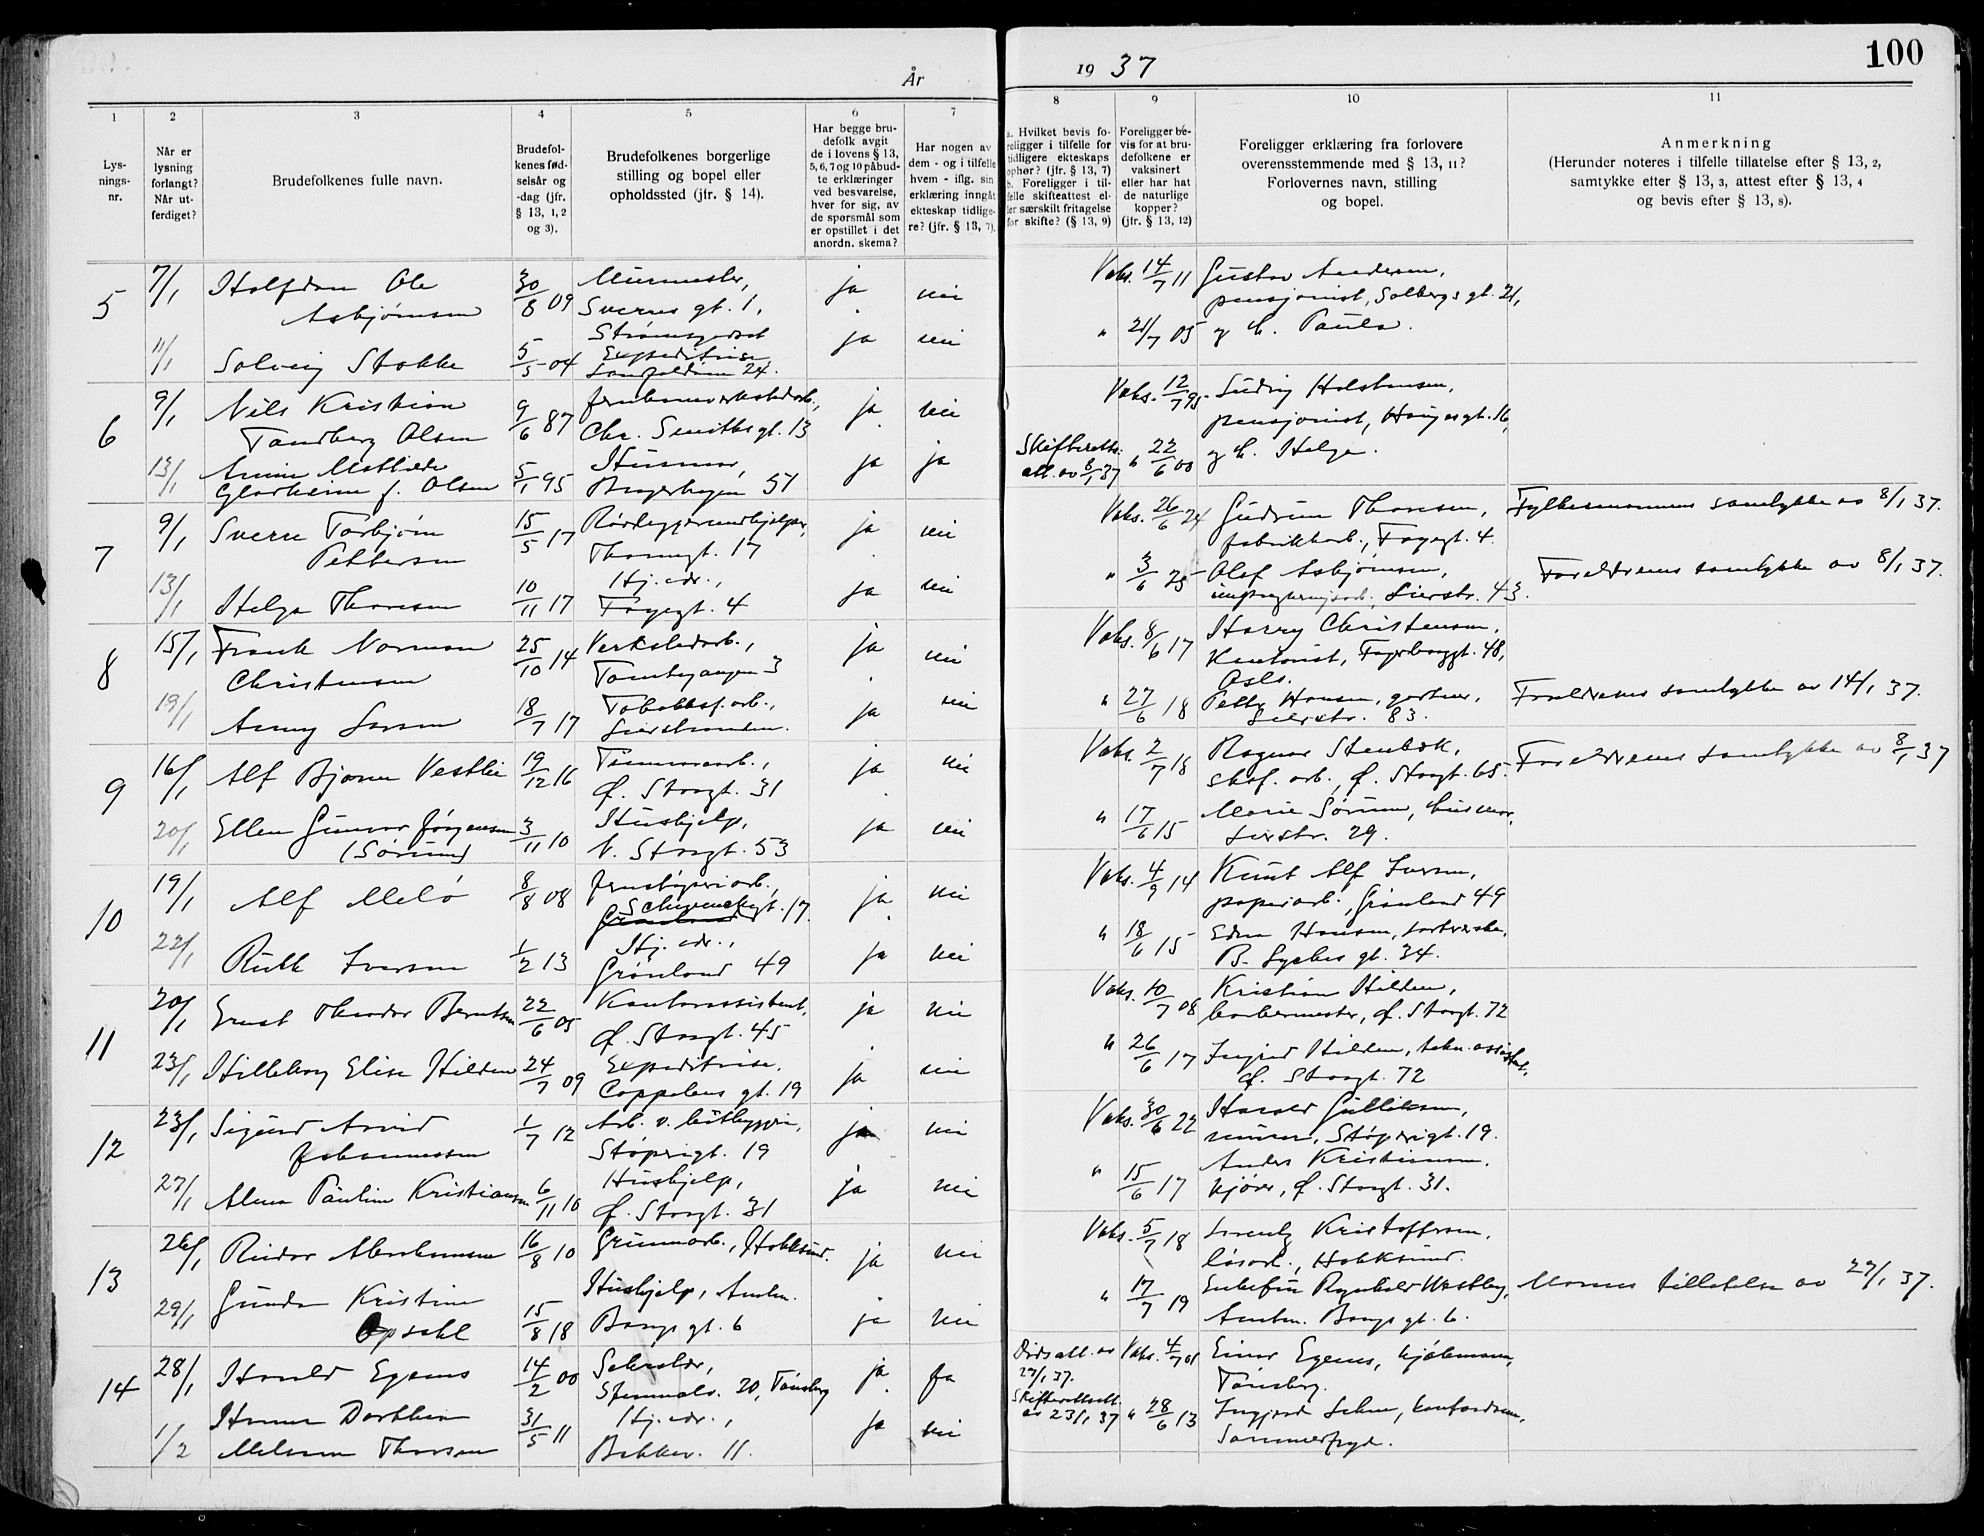 År 19 37
100
1 2 3 4 5 6 7 8 9 10 11
Lys-
nings-
nr.
Når er
lysning
forlangt?
Når ut-
ferdiget?
Brudefolkenes fulle navn.
Brudefol-
kenes fød-
selsår og
-dag (jfr.
§ 13, 1, 2
og 3).
Brudefolkenes borgerlige
stilling og bopel eller
opholdssted (jfr. § 14).
Har begge bru-
defolk avgit
de i lovens § 13,
5, 6, 7 og 10 påbud-
te erklæringer
ved besvarelse,
hver for sig, av
de spørsmål som
er opstillet i det
anordn. skema?
Har nogen av
dem - og i tilfelle
hvem - iflg. sin
erklæring inngåt
ekteskap tidlige-
re? (jfr. § 13, 7).
a. Hvilket bevis fo-
religger i tilfelle for
tidligere ekteskaps
ophør? (jfr. § 13, 7)
b. Foreligger i til-
felle skifteattest el-
ler særskilt fritagelse
for skifte? (§ 13, 9)
Foreligger be-
vis for at bru-
defolkene er
vaksinert
eller har hat
de naturlige
kopper?
(jfr. § 13, 12)
Foreligger erklæring fra forlovere
overensstemmende med § 13, 11?
Forlovernes navn, stilling
og bopel.
Anmerkning
(Herunder noteres i tilfelle tillatelse efter § 13, 2,
samtykke efter § 13, 3, attest efter § 13, 4
og bevis efter § 13, 8).
5 7/1 Halfdan Ole Asbjørnsen 30/8 09 Murmester, Sverres gt. 1, Strømsgodset ja nei Vaks. 14/7 11 Gustav Andersen, pensjonist, Solbergs gt. 21,
11/1 Solveig Stokke 5/5 04 Expeditrise, 24. ja nei " 21/7 05 og h. Paula.
6 9/1 Nils Kristian Tandberg Olsen 9/6 87 Chr. Smiths gt. 13 ja nei Vaks. 12/7 95 Ludvig Halstensen, pensjonist, Hauges gt. 16,
13/1 Annie Mathilde f. Olsen 5/1 95 Husmor, Bragerhagen 57 ja ja Skifteretts. att. av 8/1 37 " 22/6 00 og h. Helga.
7 9/1 Sverre Torbjørn Pettersen 15/5 17 Rørleggerundhjelper, Thornegt. 17 ja nei Vaks. 26/6 24 Gudrun Thoresen, fabrikkarb., Fayegt. 4. Fylkesmannens samtykke av 8/1 37.
13/1 Helga Thoresen 10/11 17 Hj. vdr., Fayegt. 4 ja nei " 3/6 25 Olaf Asbjørnsen, impregneringsarb., Lierstr. 43. Foreldrenes samtykke av 8/1 37.
8 15/1 Frank Norman Christensen 25/10 14 Verkstedarb., Tomtegangen 3 ja nei Vaks. 8/6 17 Harry Christensen, Kontorist, Fagerborggt. 48, Oslo.
19/1 Anny Larsen 18/7 17 Tobakksf.arb., Lierstranden. ja nei " 27/6 18 Petter Hansen, gartner, Lierstr. 83. Foreldrenes samtykke av 14/1 37.
9 16/1 Alf Bjarne Vestlie 19/12 16 Tømmerarb., Ø. Storgt. 31 ja nei Vaks. 2/7 18 Ragnar Stenbæk, skof. arb., Ø. Storgt. 65. Foreldrenes samtykke av 8/1 37
20/1 Ellen Gunvor Jørgensen (Sørum) 3/11 10 Hushjelp, N. Storgt. 53 ja nei " 17/6 15 Marie Sørum, husmor, Lierstr. 29.
10 19/1 Alf Melø 8/8 08 Jernstøperiarb., Schwenckegt. 17. ja nei Vaks. 4/9 14 Knut Alf Iversen, papirarb., Grønland 49
22/1 Ruth Iversen 1/2 13 Hj. vdr., Grønland 49 ja nei " 18/6 15 Edna Hansen, B. Lyches gt. 34.
11 20/1 Ernst Theodor Berntsen 22/6 05 Kontorassistent, Ø. Storgt. 45 ja nei Vaks. 10/7 08 Kristian Hilden, barbermester, Ø. Storgt. 72
23/1 Hilleborg Elise Hilden 24/7 09 Expeditrise. Coppelens gt. 19 ja nei " 26/6 17 Ingrid Hilden, Ø. Storgt. 72
12 23/1 Sigurd Arvid Johannessen 1/7 12 Arb. v. båtbyggeri, Støperigt. 19 ja nei Vaks. 30/6 22 Harald Gulliksen, murer, Støperigt. 19.
27/1 Alma Pauline Kristiansen 6/11 10 Hushjelp, Ø. Storgt. 31 ja nei " 15/6 17 Anders Kristiansen, kjører, Ø. Storgt. 31.
13 26/1 Reidar Abrahamsen 16/8 10 Grunnarb., Hokksund. ja nei Vaks. 5/7 18 Lorentz Kristoffersen, løsarb., Hokksund.
29/1 Gunda Kristine Opsahl 15/8 18 Hushjelp, Anton. Bangs gt. 6 ja nei " 17/7 19 Enkefru Ragnhild Westby, Anton. Bangs gt. 6. Morens tillatelse av 27/1 37.
14 28/1 Harald Egenes 14/2 00 20, Tønsberg ja ja Dødsatt. av 27/1 37. Skifterettsatt. av 23/1 37 Vaks. 4/7 01 Einar Egenes, kjøbmann, Tønsberg.
1/2 Hanna Dorthea Melsom Thorsen 31/5 11 Hj. vdr., Bekkev. 11. ja nei " 28/6 13 Ingjerd Lehn, Sommerfryd.